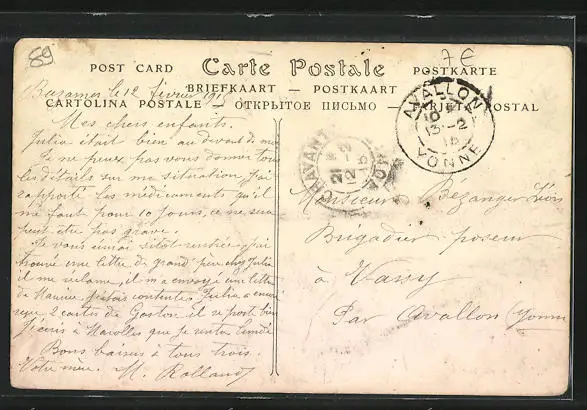 89
7E
POST CARD Carte Postale POSTKARTE
BRIEFKAART — POSTKAART
CARTOLINA POSTALE — ОТКРЫТОЕ ПИСЬМО — TARJETA POSTAL
le 12 février 1915
Mes chers enfants.
Julia était bien au devant de moi
Je ne peux pas vous donner tous
les détails sur ma situation, j'ai
rapporté les médicaments qu'il
me faut pour 10 jours, ce ne sera
peut être pas grave.
Je vous écrirai sitôt rentrée, j'ai
trouvé une lettre du grand père chez Julia
il me réclame, il m'a envoyé une lettre
de Maurice, je suis contente, Julia a aussi
reçu 2 cartes de Gaston il se porte bien
que je
Bons baisers à tous trois.
Votre mère. M. Rolland
AVALLON
13-2
15
YONNE
CHAYANT
21
12-2
Monsieur Bezanger Léon
Brigadier poseur
à Vassy
Par Avallon (Yonne